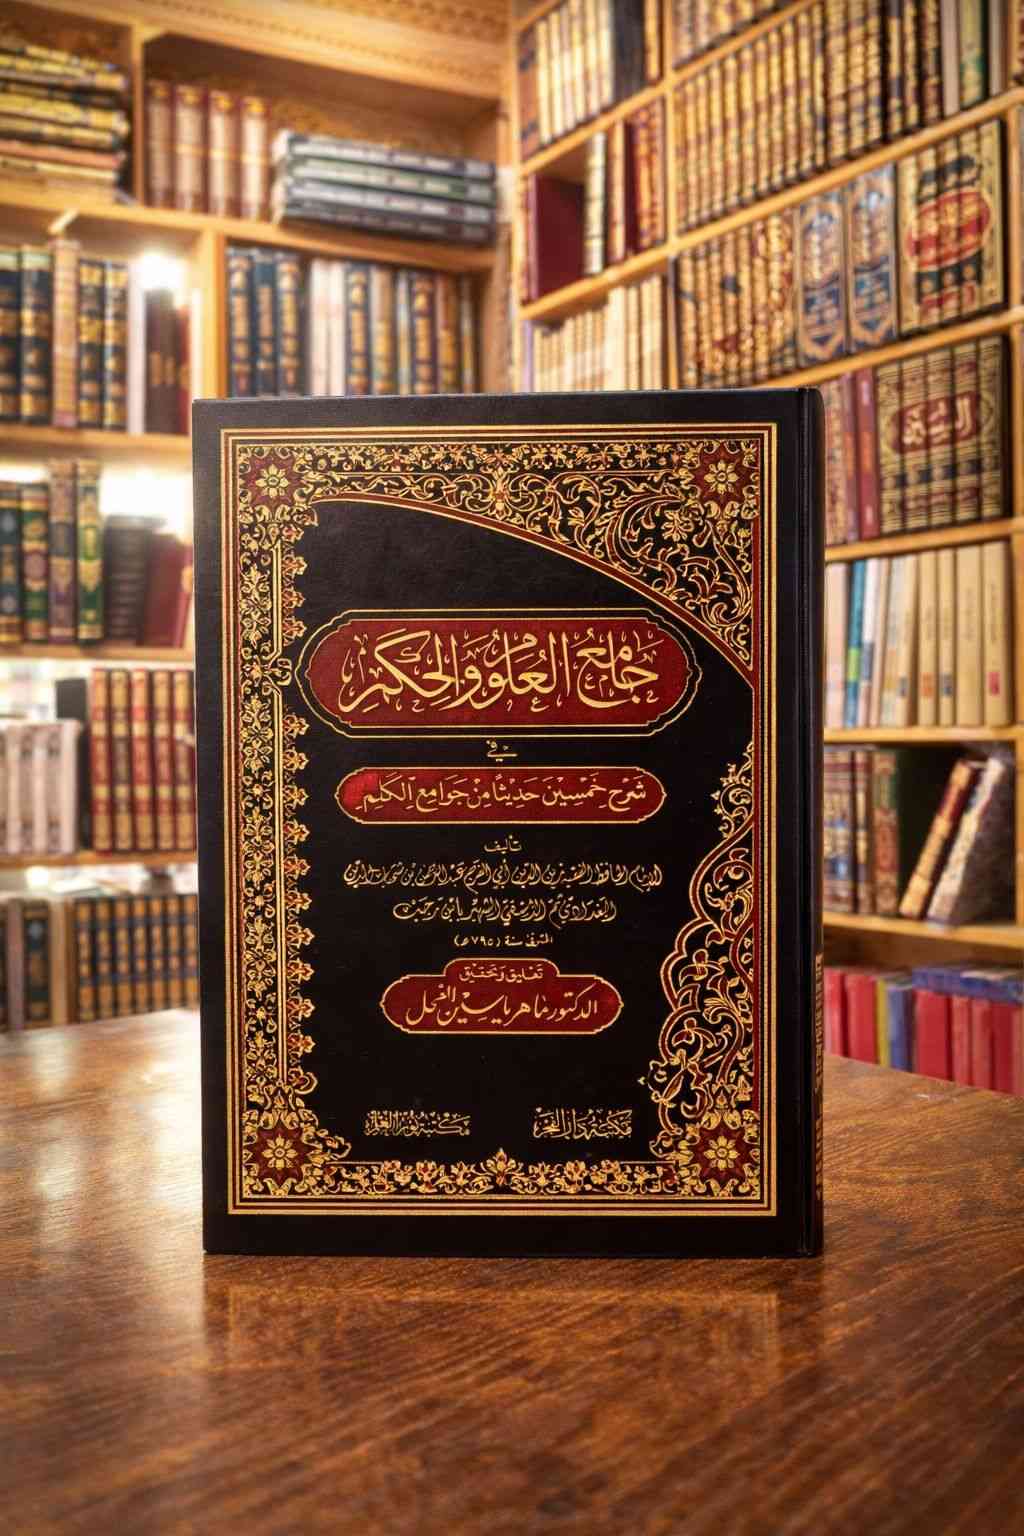 جَامِعُ العُلُومِ وَالحِكَمِ
في
شَرْحِ خَمْسِيْنَ حَدِيْثًا مِنْ جَوَامِعِ الكَلِمِ
تأليف
الإمام الحافظ الفقيه زين الدين أبي الفرج عبد الرحمن بن شهاب الدين
البغدادي ثم الدمشقي الشهير بابن رجب
المتوفى سنة (٧٩٥ هـ)
تَعليق وَتحقيق
الدكتور ماهر ياسين الفحل
مكتبة دار الفجر
السنن